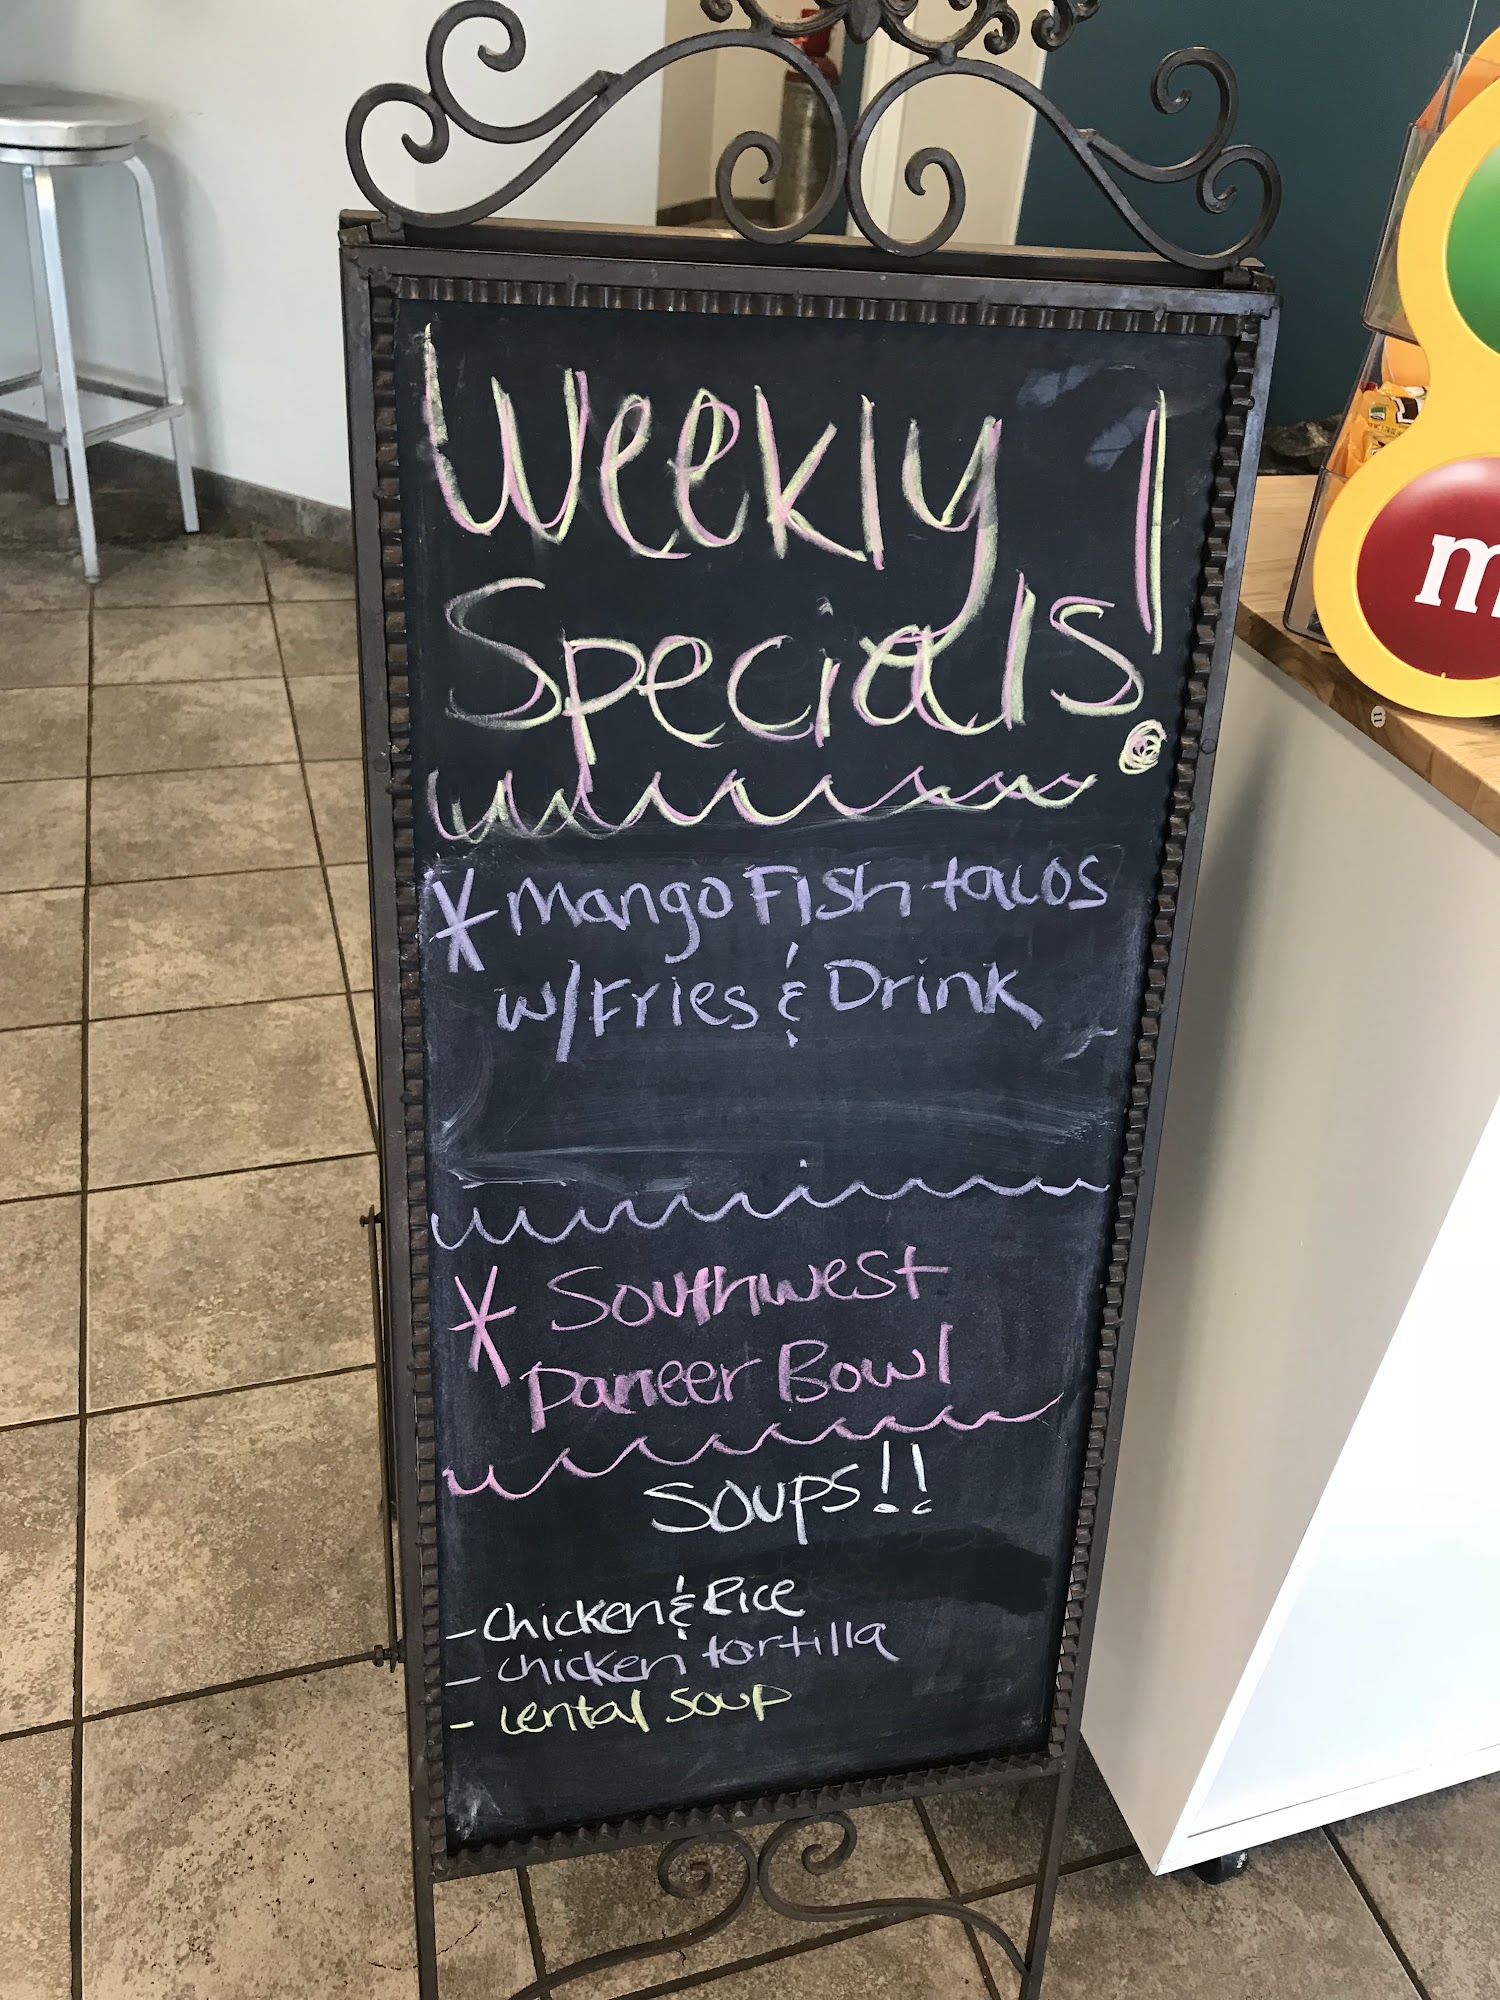 Weekly
Specials!
* Mango Fish tacos
w/Fries & Drink
* Southwest
Paneer Bowl
Soups!!
- Chicken & Rice
- Chicken tortilla
- Lental Soup
m